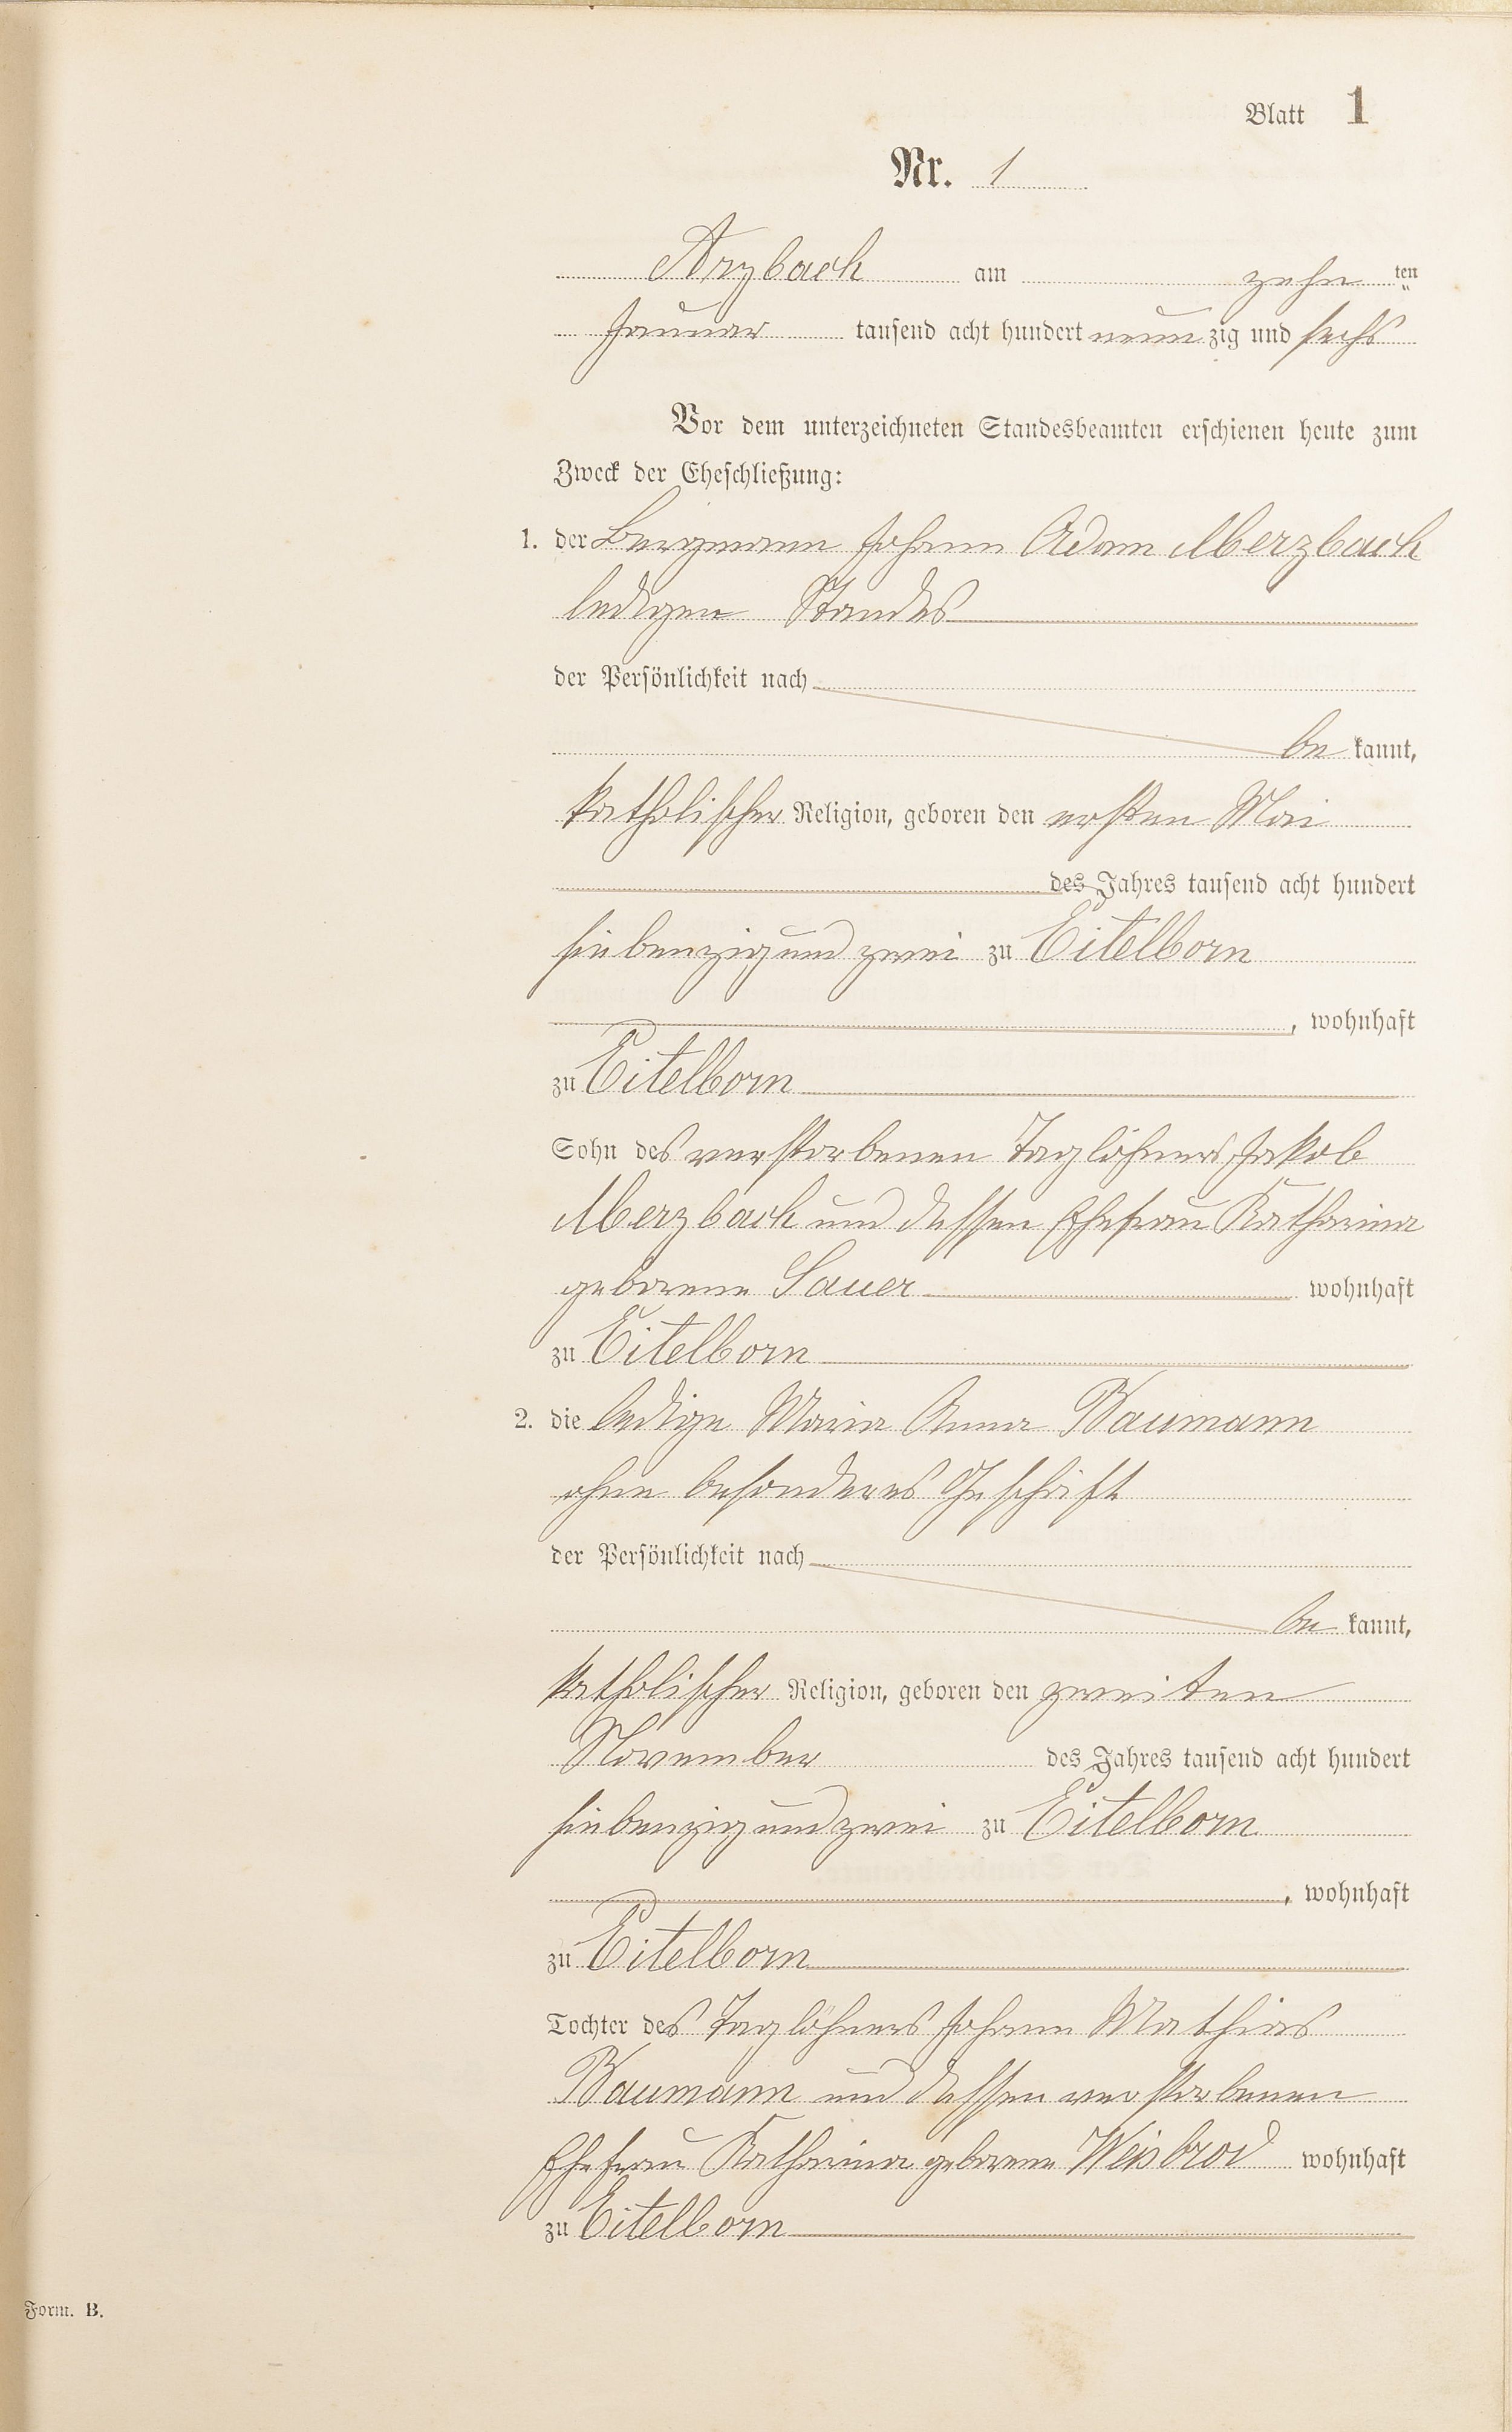 Blatt 1
Nr. 1
Arzbach am zehn ten
Januar tausend acht hundert neun zig und sechs
Vor dem unterzeichneten Standesbeamten erschienen heute zum
Zweck der Eheschließung:
1. der Bergmann Johann Adam Merzbach
ledigen Standes
der Persönlichkeit nach
be kannt,
katholischer Religion, geboren den ersten Mai
des Jahres tausend acht hundert
siebenzig und zwei zu Eitelborn
, wohnhaft
zu Eitelborn
Sohn des verstorbenen Taglöhners Jakob
Merzbach und dessen Ehefrau Katharina
geborene Sauer wohnhaft
zu Eitelborn
2. die ledige Maria Anna Baumann
ohne besonderes Geschäft
der Persönlichkeit nach
be kannt,
katholischer Religion, geboren den zweiten
November des Jahres tausend acht hundert
siebenzig und zwei zu Eitelborn
, wohnhaft
zu Eitelborn
Tochter des Taglöhners Johann Mathias
Baumann und dessen verstorbenen
Ehefrau Katharina geborene Weisbrod wohnhaft
zu Eitelborn
Form. B.